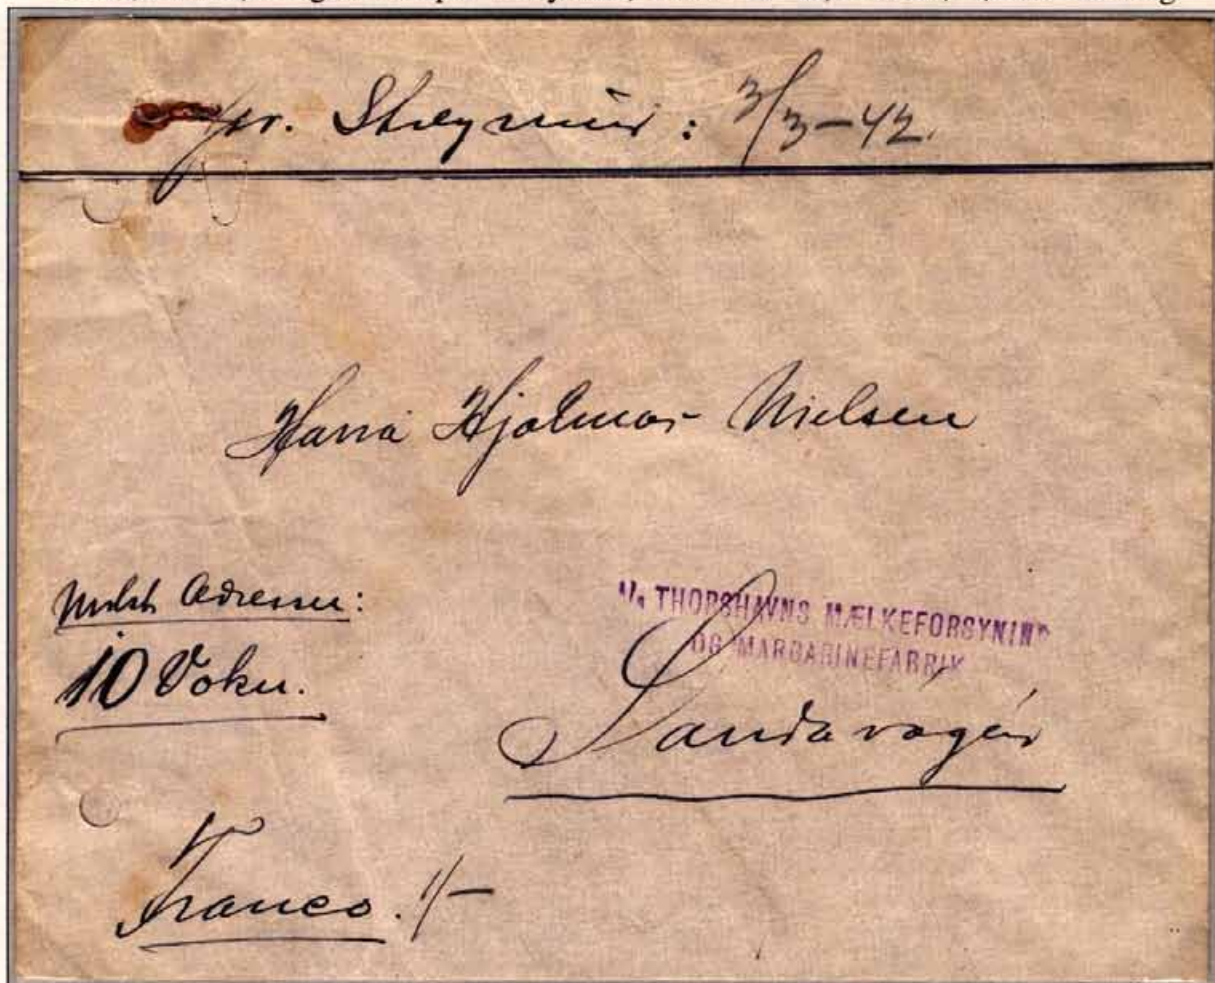 pr. Steymur: 3/3-42.
Harra Hjalmar Nielsen
Adressu:
10
A/s THORSHAVNS MÆLKEFORSYNING
OG MARGARINEFABRIK
Sandavágur
Franco. 1/-